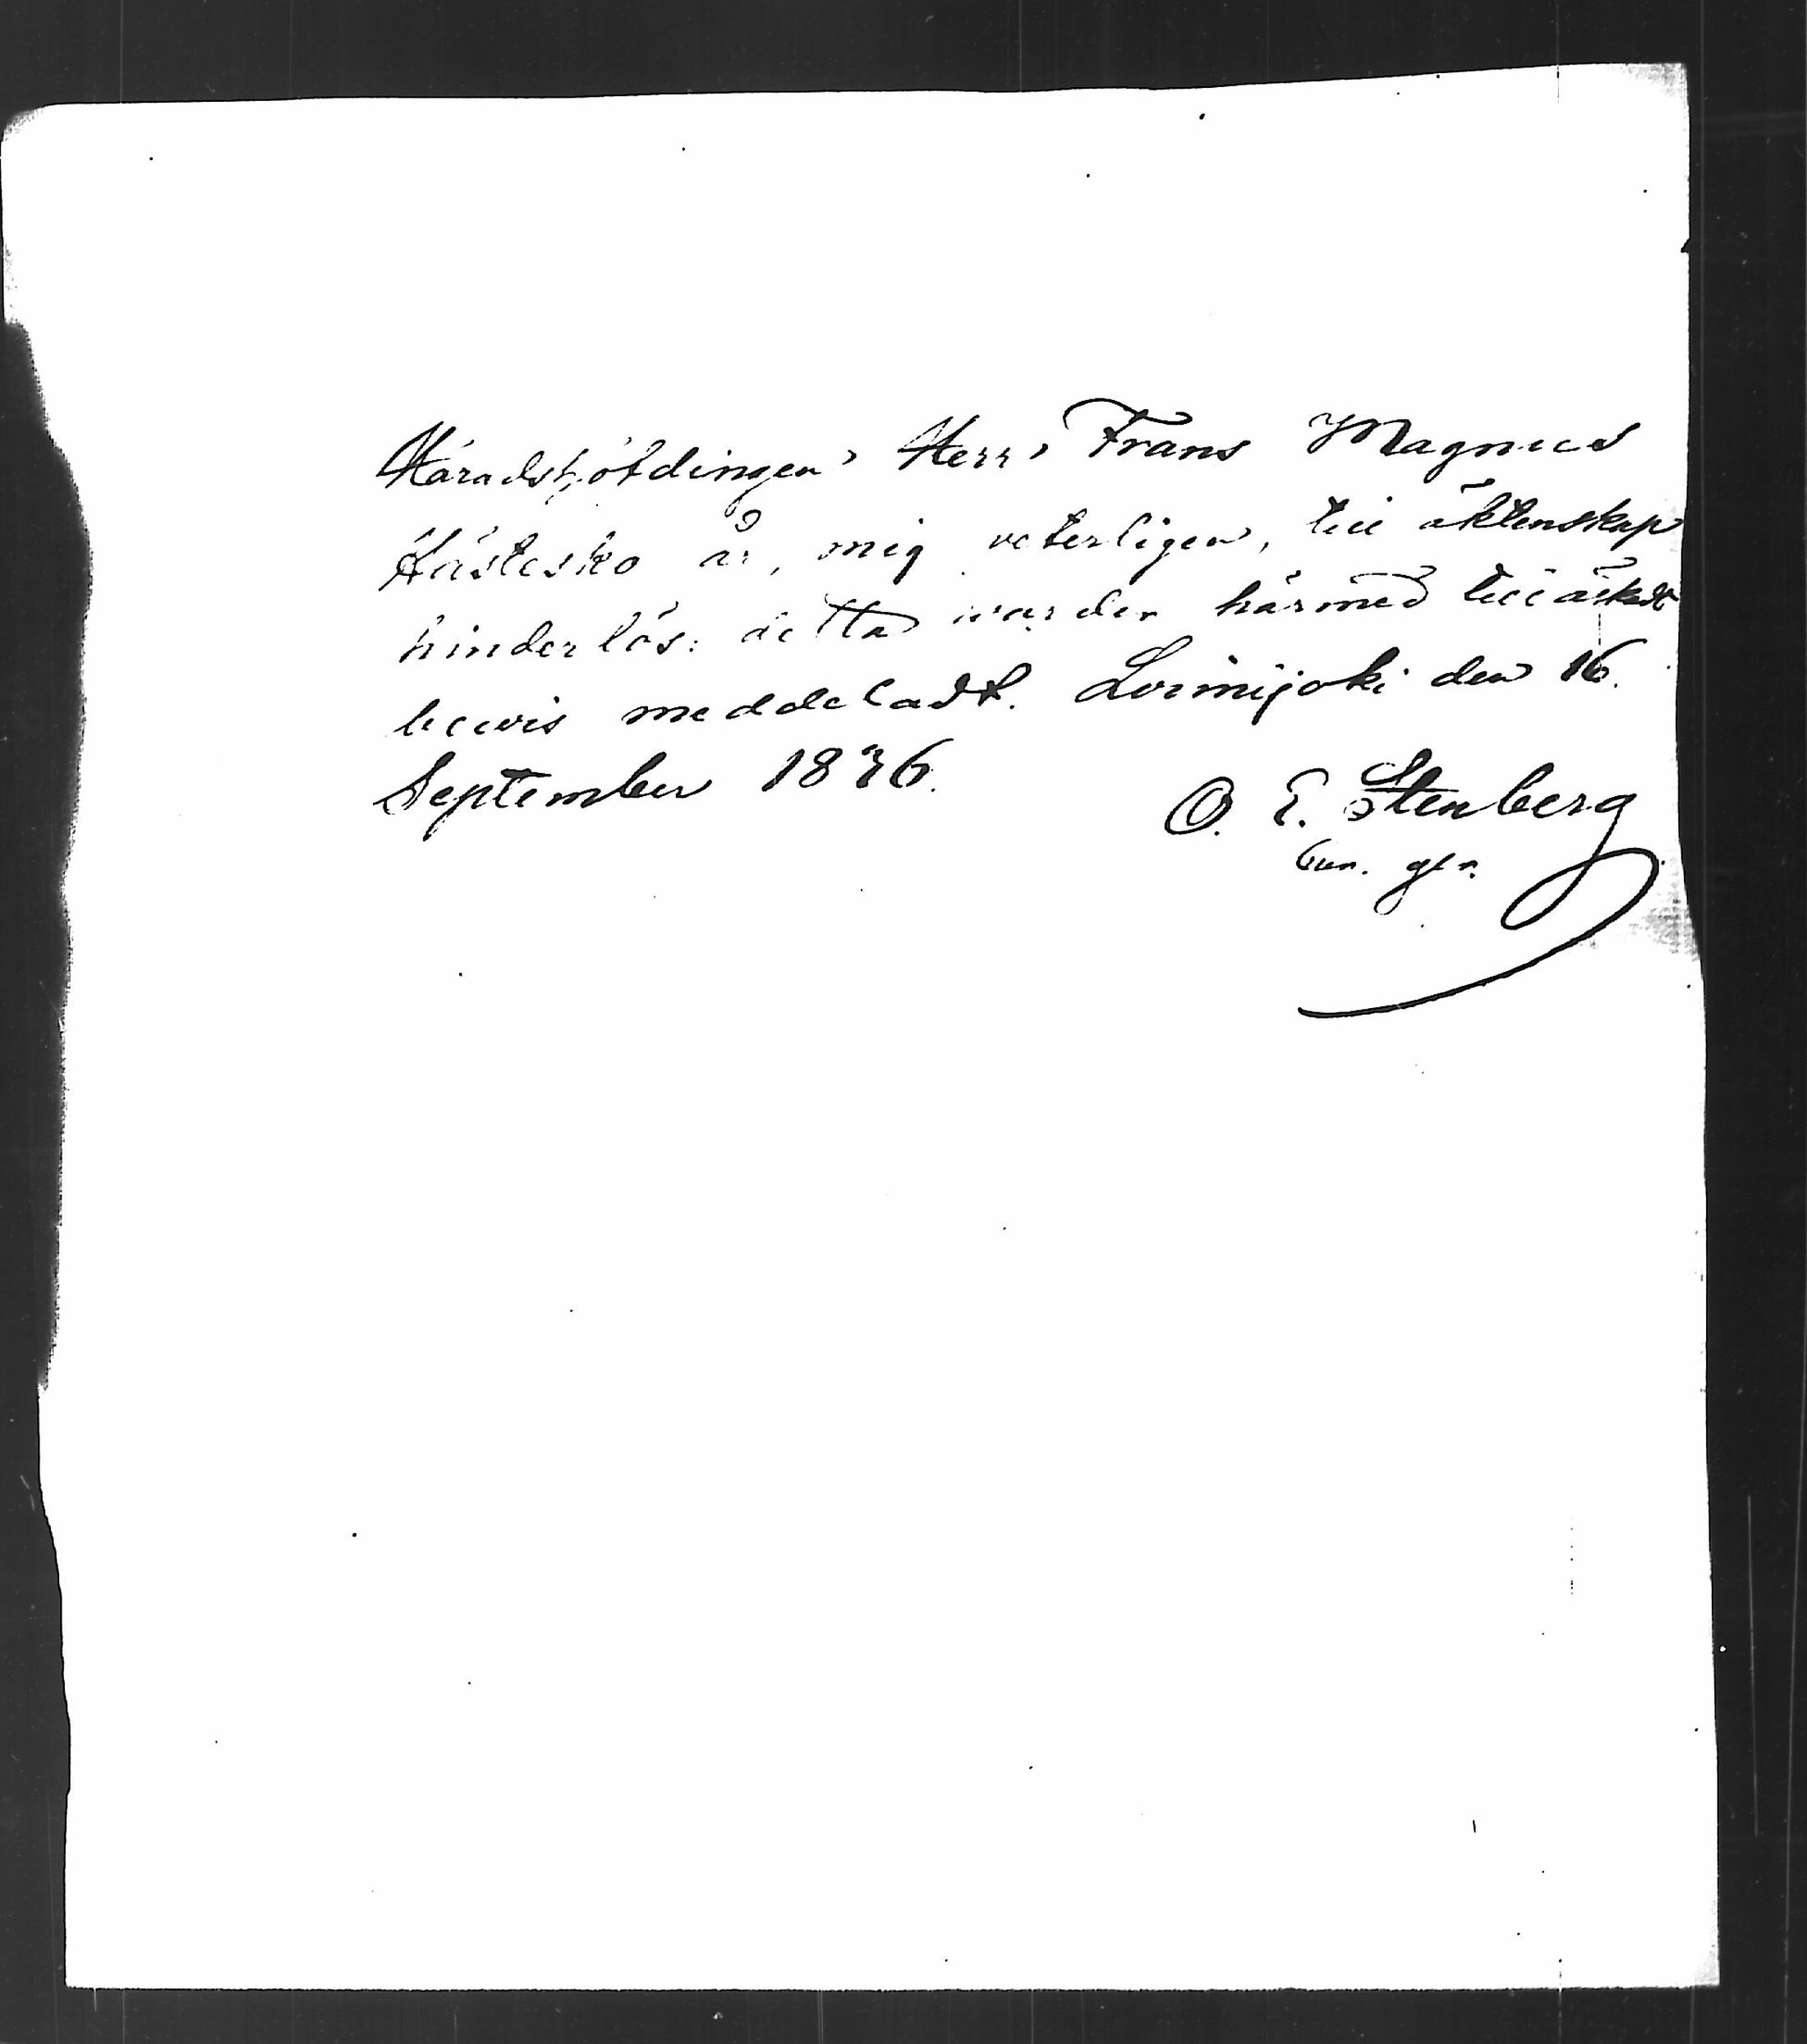 Häradshöfdingen Herr Frans Magnus
Hästesko är, mig veterligen, till äktenskap
hinderlös: detta warder härmed till äskadt
bewis meddeladt. Loimijoki den 16.
September 1836.
O. E. Stenberg